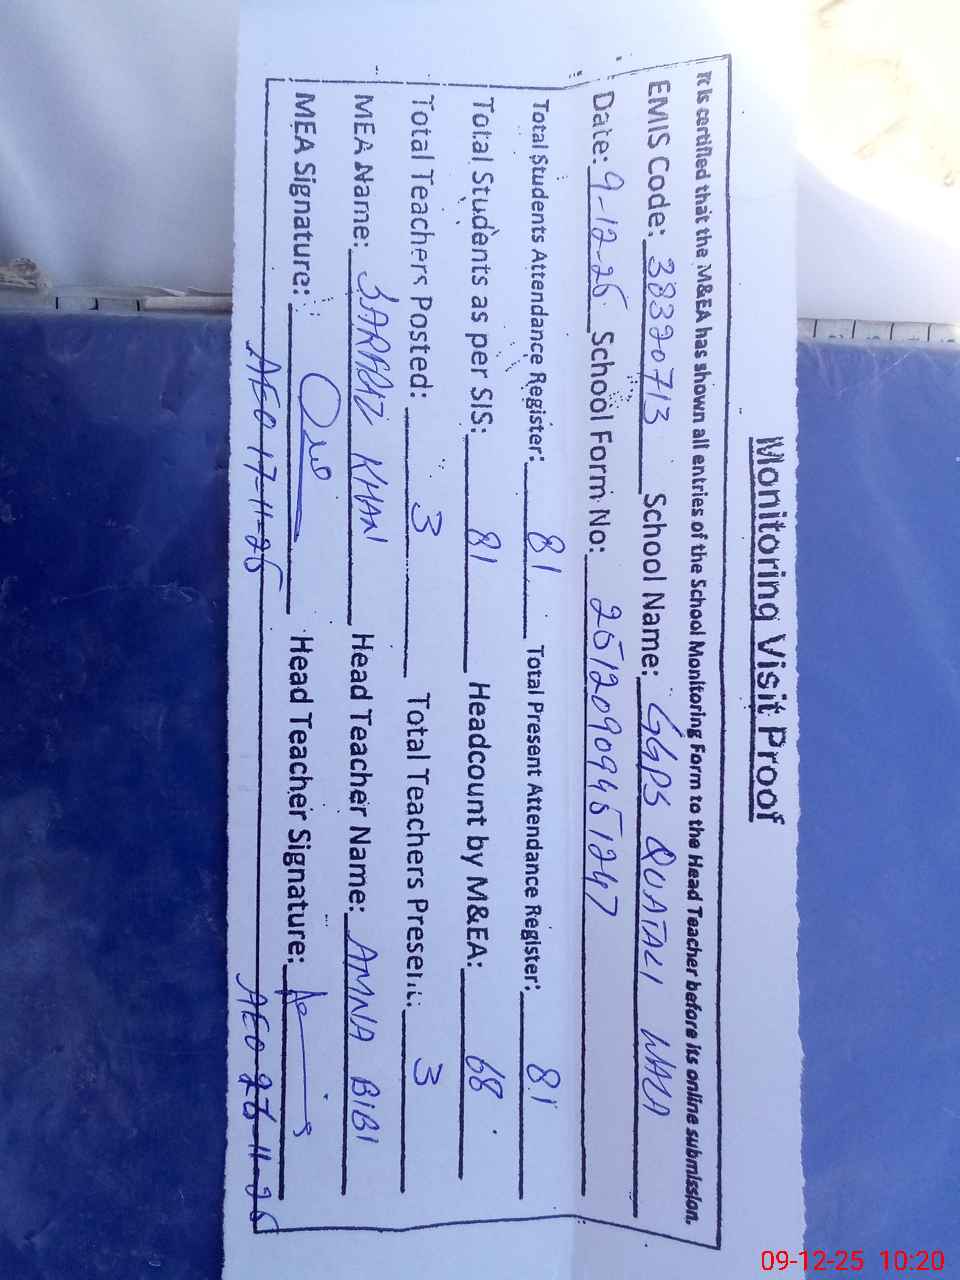 Monitoring Visit Proof
It is certified that the M&EA has shown all entries of the School Monitoring Form to the Head Teacher before its online submission.
EMIS Code: 38320713 School Name: GGPS QUATALI WALA
Date: 9-12-25 School Form No: 25120909451247
Total Students Attendance Register: 81 Total Present Attendance Register: 81
Total Students as per SIS: 81 Headcount by M&EA: 68
Total Teachers Posted: 3 Total Teachers Present: 3
MEA Name: SARFRAZ KHAN Head Teacher Name: AMNA BIBI
MEA Signature: Head Teacher Signature:
AEO 17-11-25 AEO 27-11-25
09-12-25 10:20